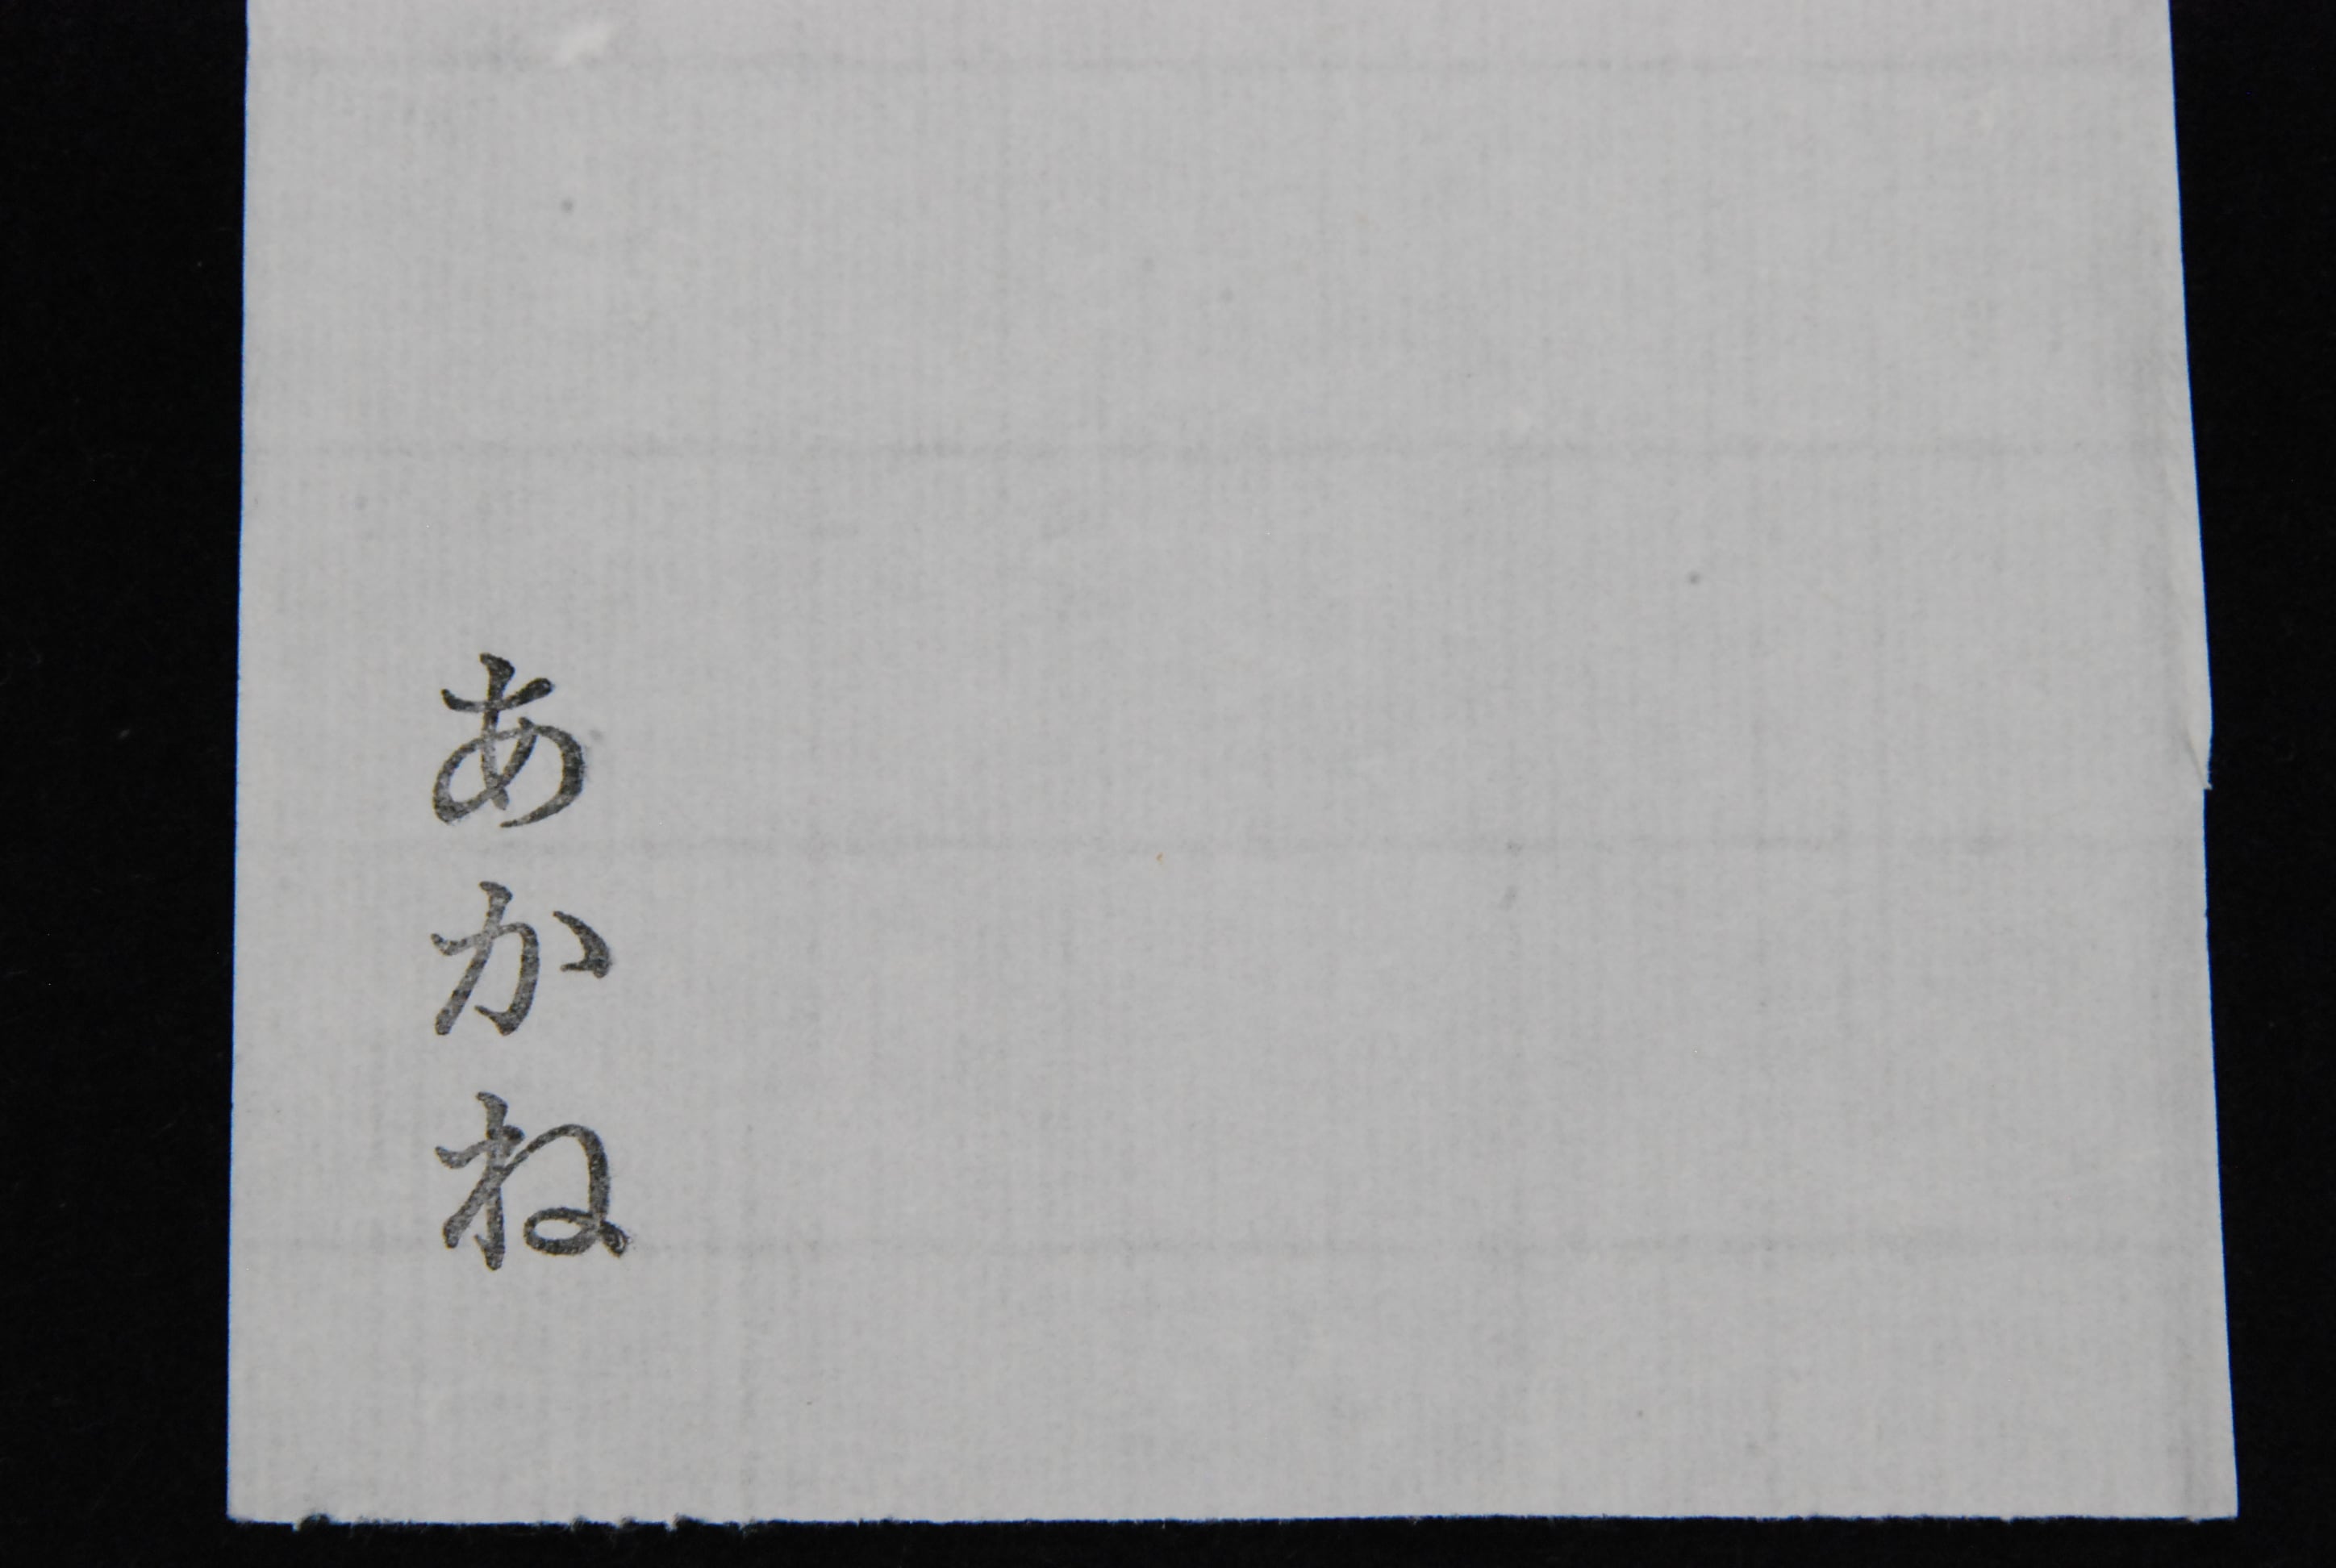 あかね